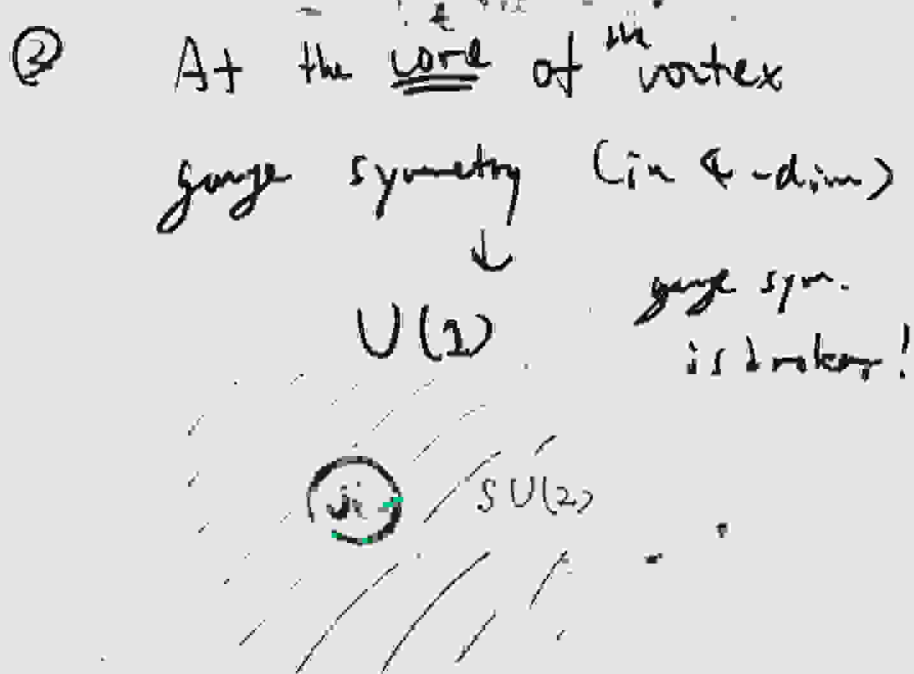 ② At the core of the vortex
gauge symmetry (in 4-dim)
↓
U(1)
gauge sym.
is broken!
SU(2)